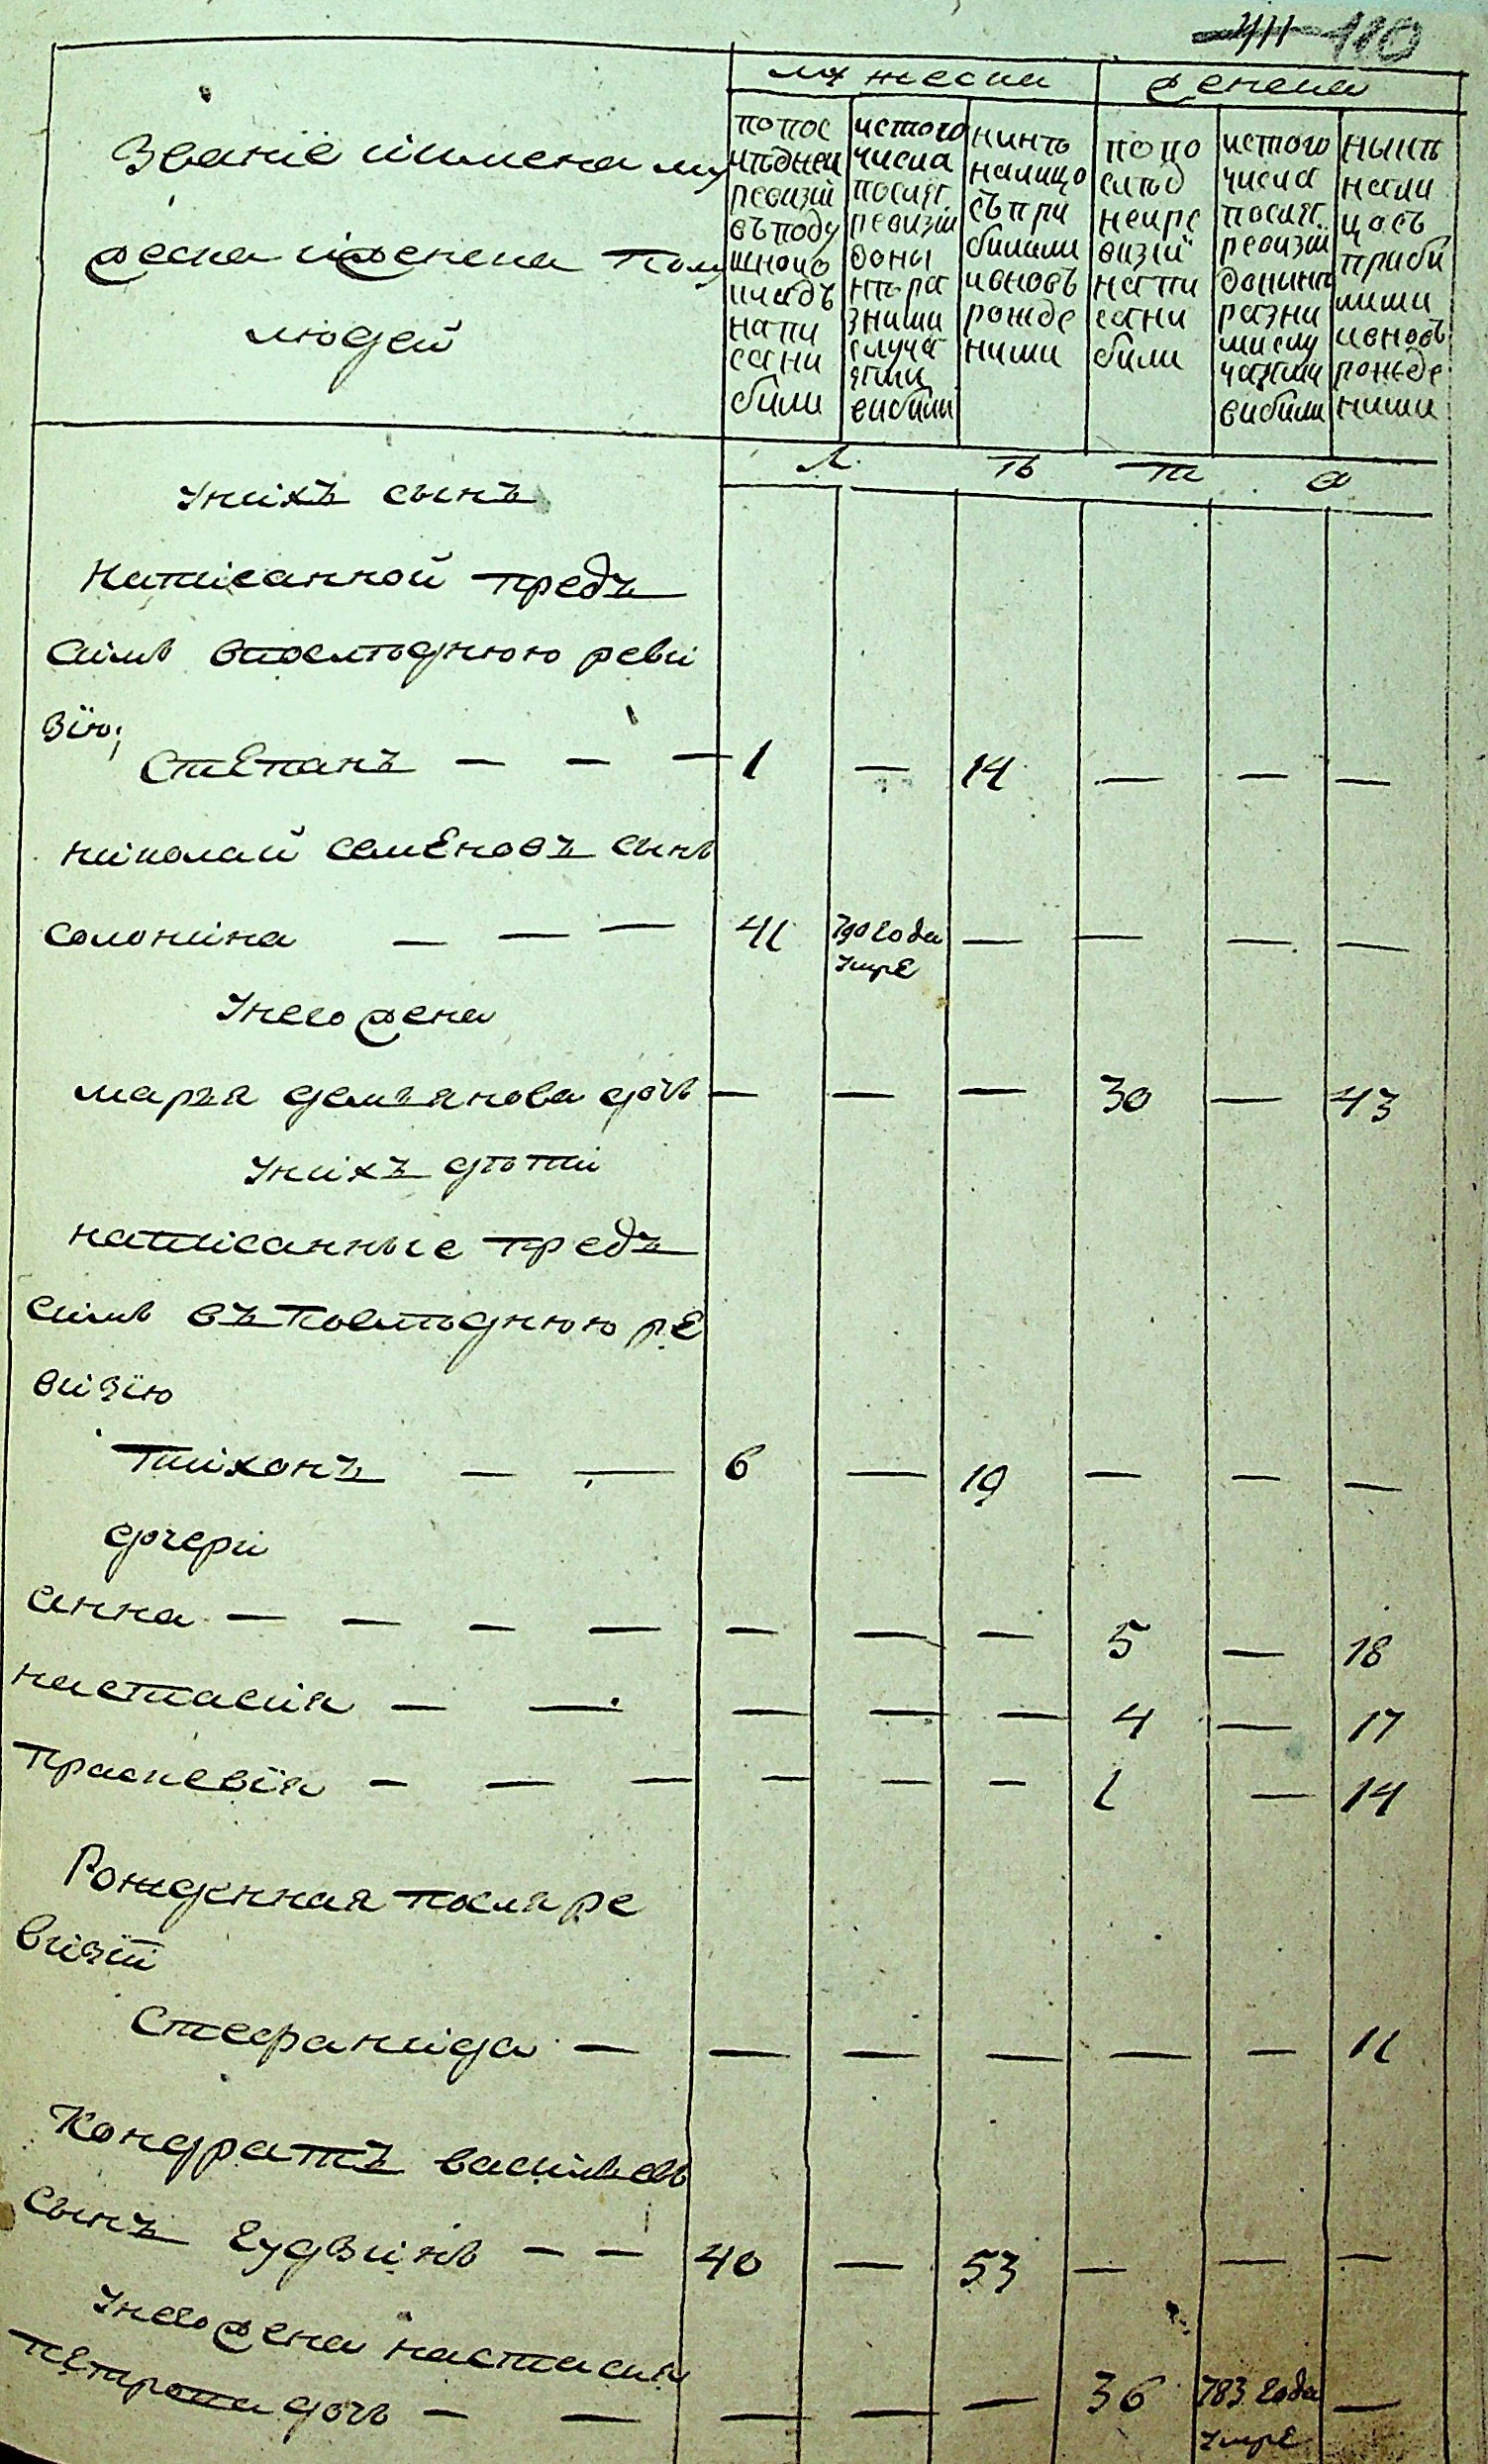 180
мужеска женска
Званіе иимена му
жеска иженска полу
людей
попос
лѣднеи
ревизіи
въподу
шномо
кладъ
напи
сани
били
истого
числа
послѧ
ревизіи
доны
нѣра
зними
случа
ѧми
вибили
нинѣ
налицо
съпри
билими
ивновъ
рожде
ними
попо
слѣд
неире
визіи
напи
сани
били
истого
числа
послѧ
ревизіи
донинѣ
разни
мислу
чаѧми
вибили
нынѣ
нали
цосъ
приби
лими
ивновъ
рожде
ними
Л ѣ т а
Унихъ сынъ
написанной предъ
симъ впослѣднюю реви
зїю;
СтЕпанъ — — — 1 — 14 — — —
николай семЕновъ сынъ
солонина — — — 41 790 года — — — —
УмрЕ
Унего жена
марья демьянова дочь — — — 30 — 43
Унихъ дѣти
написанные предъ
симъ въпослѣднюю рЕ
визїю
тихонъ — — 6 — 19 — — —
дочери
анна — — — — — — — 5 — 18
настасия — — — — — 4 — 17
прасковїя — — — — — — 1 — 14
Рожденная послѧ ре
визїи
Стефанида — — — — — — 11
Кондратъ васильевъ
сынъ гудзинъ — — 40 — 53 — — —
Унего жена настасия
пЕтрова дочь — — — — — 36 783 года —
УмрЕ